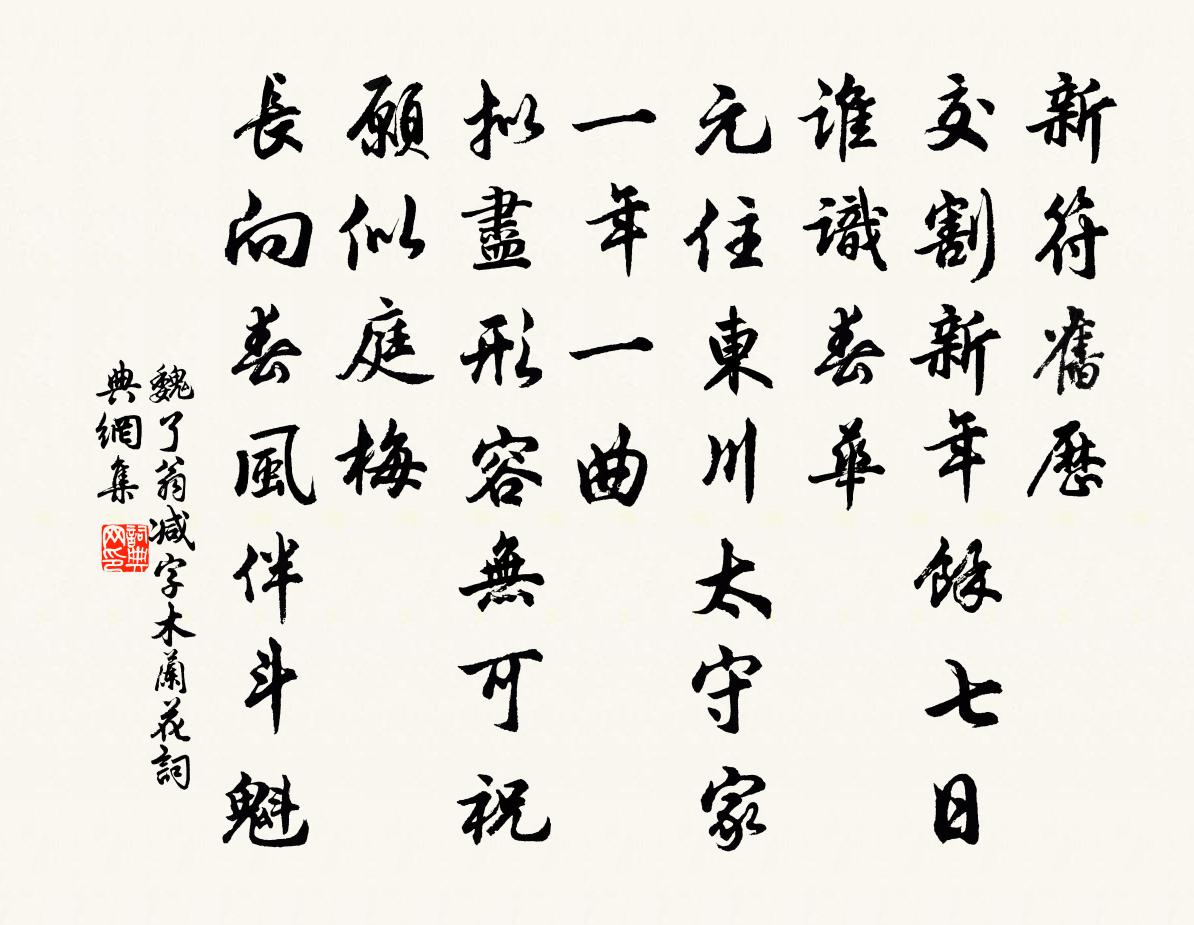 新符舊歷
交割新年餘七日
誰識春華
元住東川太守家
一年一曲
擬盡形容無可祝
願似庭梅
長向春風伴斗魁
魏了翁減字木蘭花詞
典網集
詞典网印